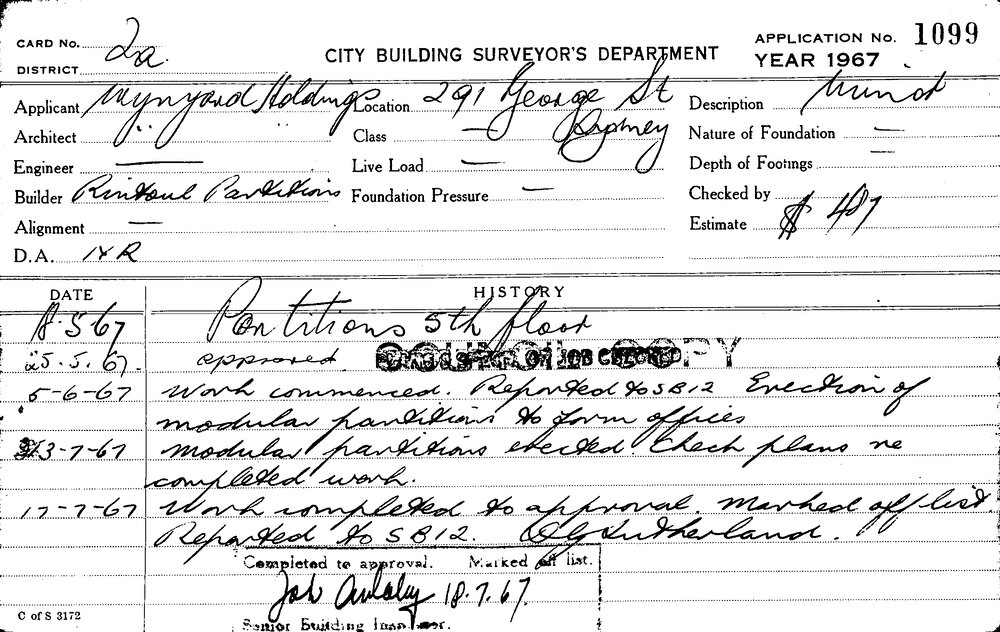 CARD No. 2a.
DISTRICT
CITY BUILDING SURVEYOR'S DEPARTMENT
APPLICATION No. 1099
YEAR 1967
Applicant Wynyard Holdings
Location 291 George St
Sydney
Description
Architect " "
Class —
Nature of Foundation —
Engineer —
Live Load —
Depth of Footings —
Builder Rintoul Partitions
Foundation Pressure —
Checked by
Alignment —
Estimate $ 487
D.A.
DATE
HISTORY
5 67 Partitions 5th floor
25.5.67. approved
JOB CHECKED
COPY
5-6-67 Work commenced. Reported to SB12 Erection of
modular partitions to form offices
3-7-67 modular partitions erected Check plans re
completed work.
17-7-67 Work completed to approval. Marked off list.
Reported to SB12. Sutherland.
Completed to approval. Marked off list.
18.7.67.
Senior Building Inspector.
C of S 3172